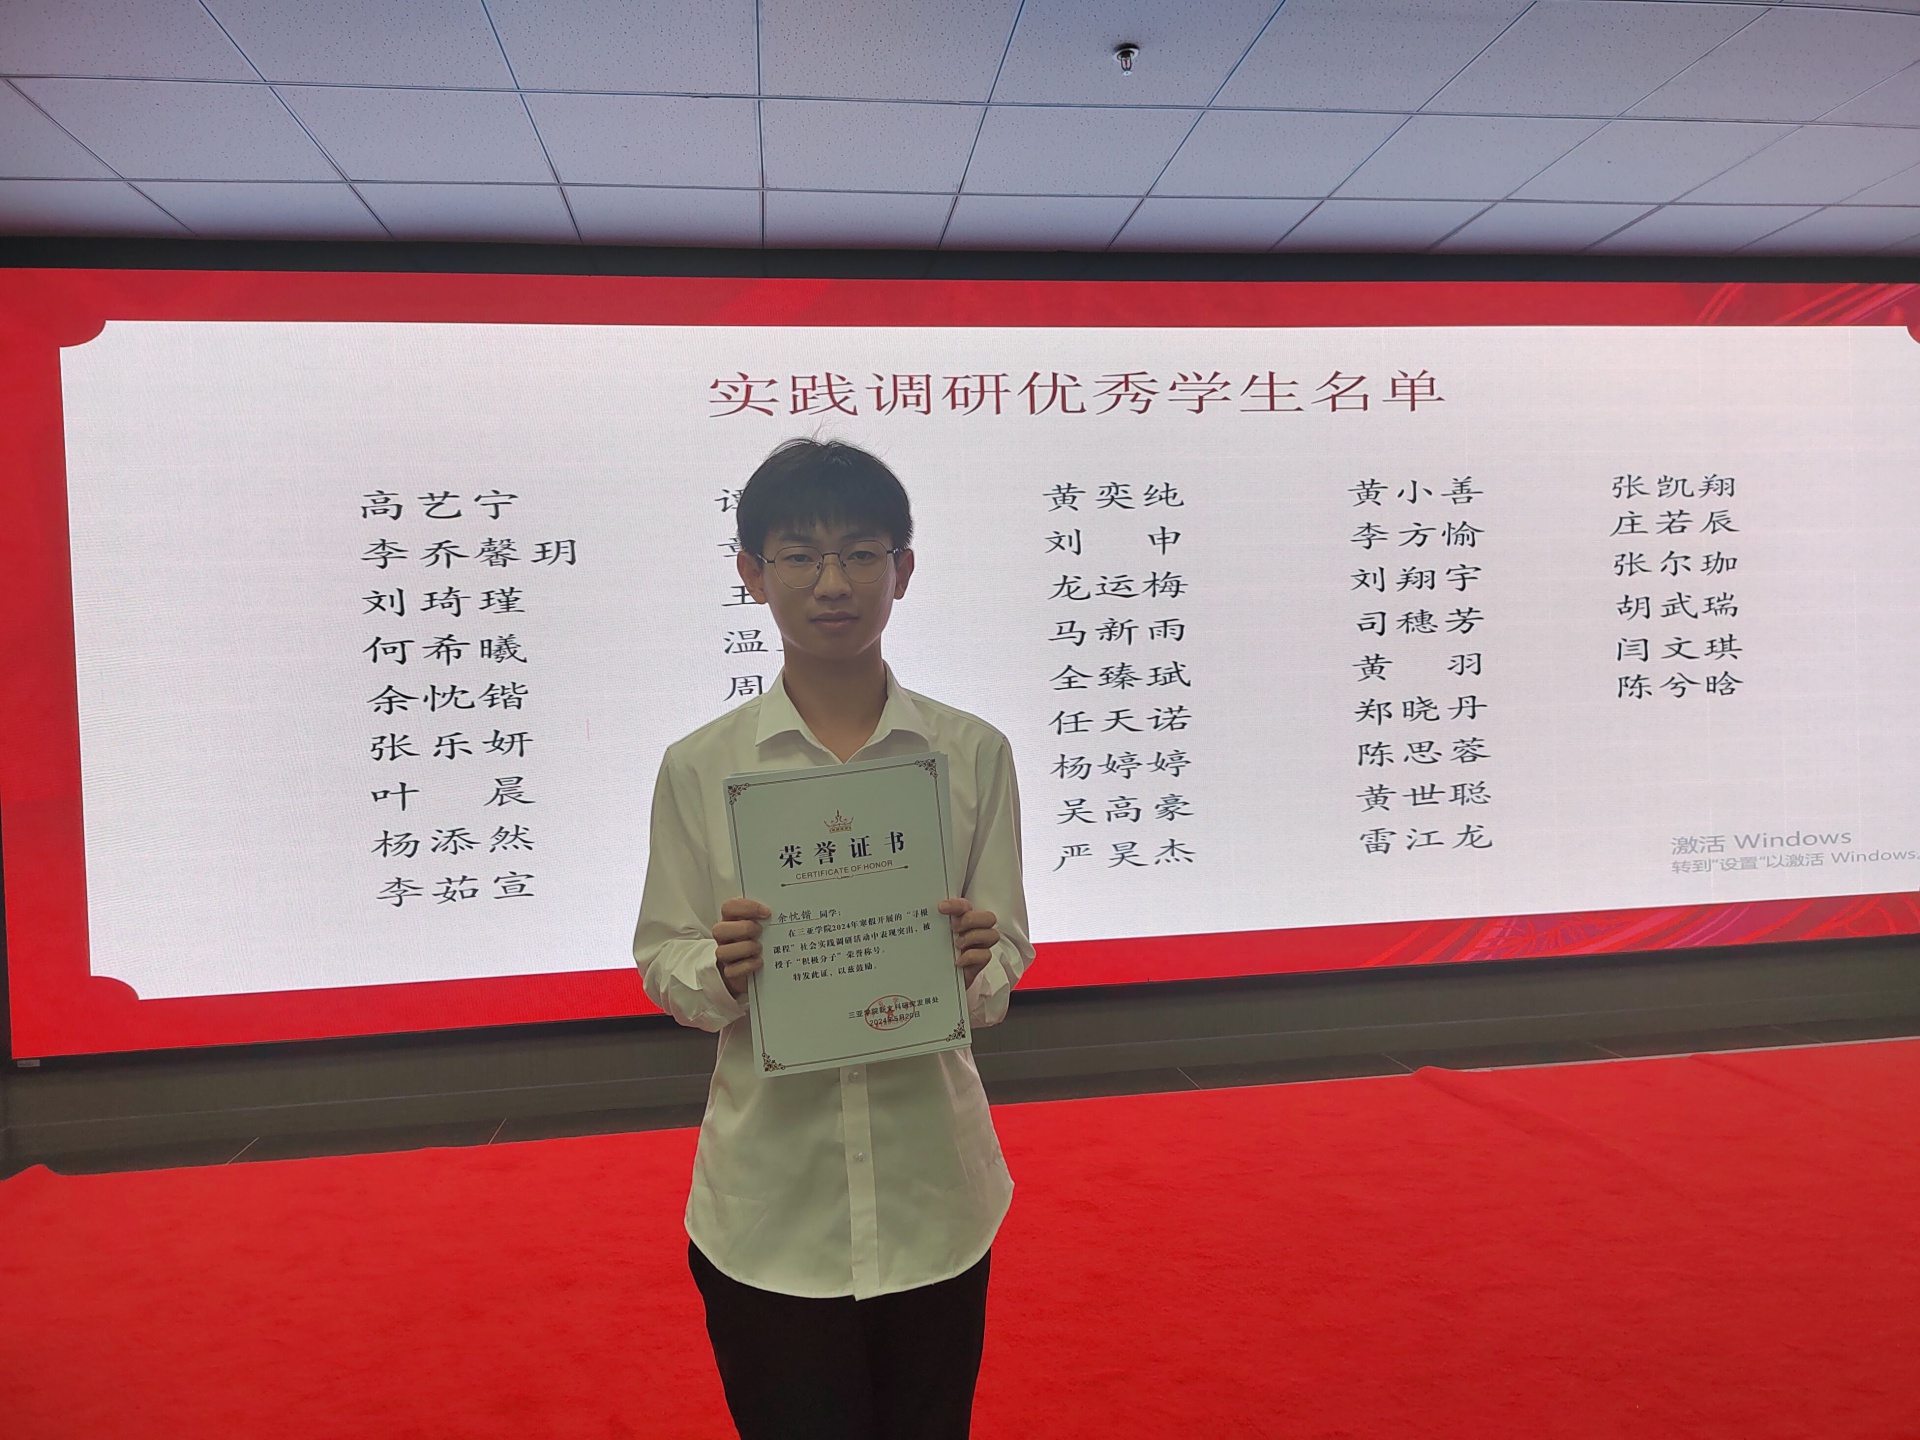 实践调研优秀学生名单
高艺宁
李乔馨玥
刘琦瑾
何希曦
余忱锴
张乐妍
叶晨
杨添然
李茹宣
王
温
周
黄奕纯
刘申
龙运梅
马新雨
全臻珷
任天诺
杨婷婷
吴高豪
严昊杰
黄小善
李方愉
刘翔宇
司穗芳
黄羽
郑晓丹
陈思蓉
黄世聪
雷江龙
张凯翔
庄若辰
张尔珈
胡武瑞
闫文琪
陈兮晗
激活 Windows
转到“设置”以激活 Windows。
荣誉证书
CERTIFICATE OF HONOR
余忱锴 同学：
在三亚学院2024年寒假开展的“寻根
课程”社会实践调研活动中表现突出，被
授予“积极分子”荣誉称号。
特发此证，以兹鼓励。
三亚学院新文科研究发展处
2024年5月20日